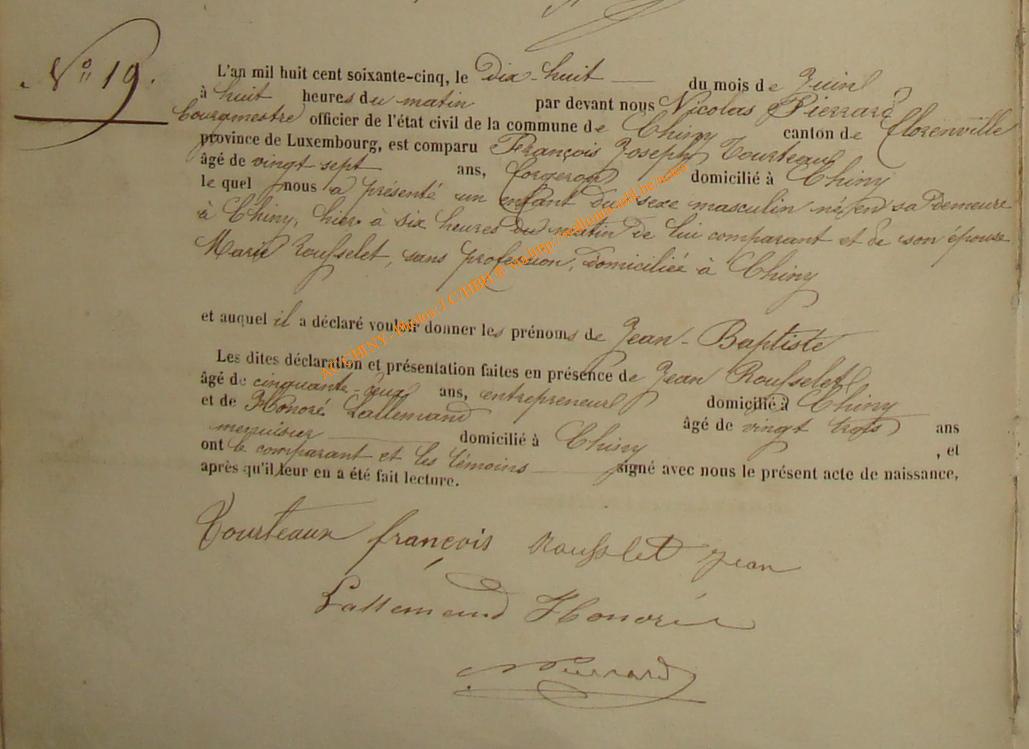 N° 19.
L'an mil huit cent soixante-cinq, le Dix-huit du mois de Juin
à huit heures du matin par devant nous Nicolas Pierrard
Bourgmestre officier de l'état civil de la commune de Chiny canton de Florenville
province de Luxembourg, est comparu François Joseph Tourteaux
âgé de vingt sept ans, forgeron domicilié à Chiny
le quel nous a présenté un enfant du sexe masculin né en sa demeure
à Chiny, hier à six heures du matin de lui comparant et de son épouse
Marie Rousselet, sans profession, domiciliée à Chiny
et auquel il a déclaré vouloir donner les prénoms de Jean-Baptiste
Les dites déclaration et présentation faites en présence de Jean Rousselet
âgé de cinquante-deux ans, entrepreneur domicilié à Chiny
et de Honoré Lallemand âgé de vingt trois ans
menuisier domicilié à Chiny , et
ont le comparant et les témoins signé avec nous le présent acte de naissance,
après qu'il leur en a été fait lecture.
Tourteaux françois Rousslet Jean
Lallemand Honoré
Pierrard